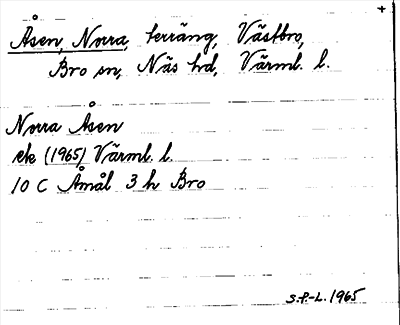 +
Åsen, Norra, terräng, Västbro,
Bro sn, Näs hd, Värml. l.
Norra Åsen
ek (1965) Värml. l.
10 C Åmål 3 h Bro
S.P.-L. 1965